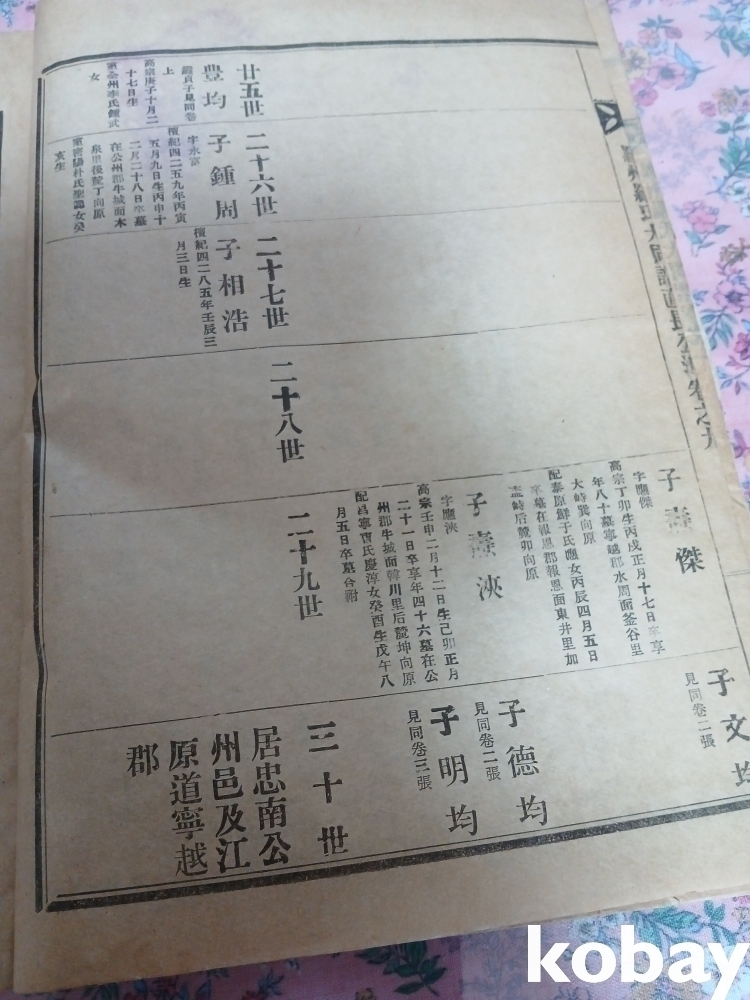 子文均
見同卷二張
字應傑
高宗丁卯生丙戌正月十七日卒享
年八十墓寧越郡水周面釜谷里
大峙巽向原
配泰原鮮于氏 女丙辰四月五日
卒墓在報恩郡報恩面東井里加
峙后麓卯向原
字應浹
高宗壬申二月十二日生己卯正月
二十一日卒享年四十六墓在公
州郡牛城面韓川里后麓坤向原
配昌寧曺氏慶淳女癸酉生戊午八
月五日卒墓合祔
子德均
見同卷二張
子明均
見同卷三張
廿五世
二十六世
二十七世
二十八世
二十九世
三十世
豊均
見同卷
上
高宗庚子十月二
十七日生
女
子鍾周
字永富
檀紀四二五九年丙寅
五月九日生丙申十
二月二十八日卒墓
在公州郡牛城面木
泉里後麓丁向原
室密陽朴氏 女癸
亥生
子相浩
檀紀四二八五年壬辰三
月三日生
居忠南公
州邑及江
原道寧越
郡
kobay